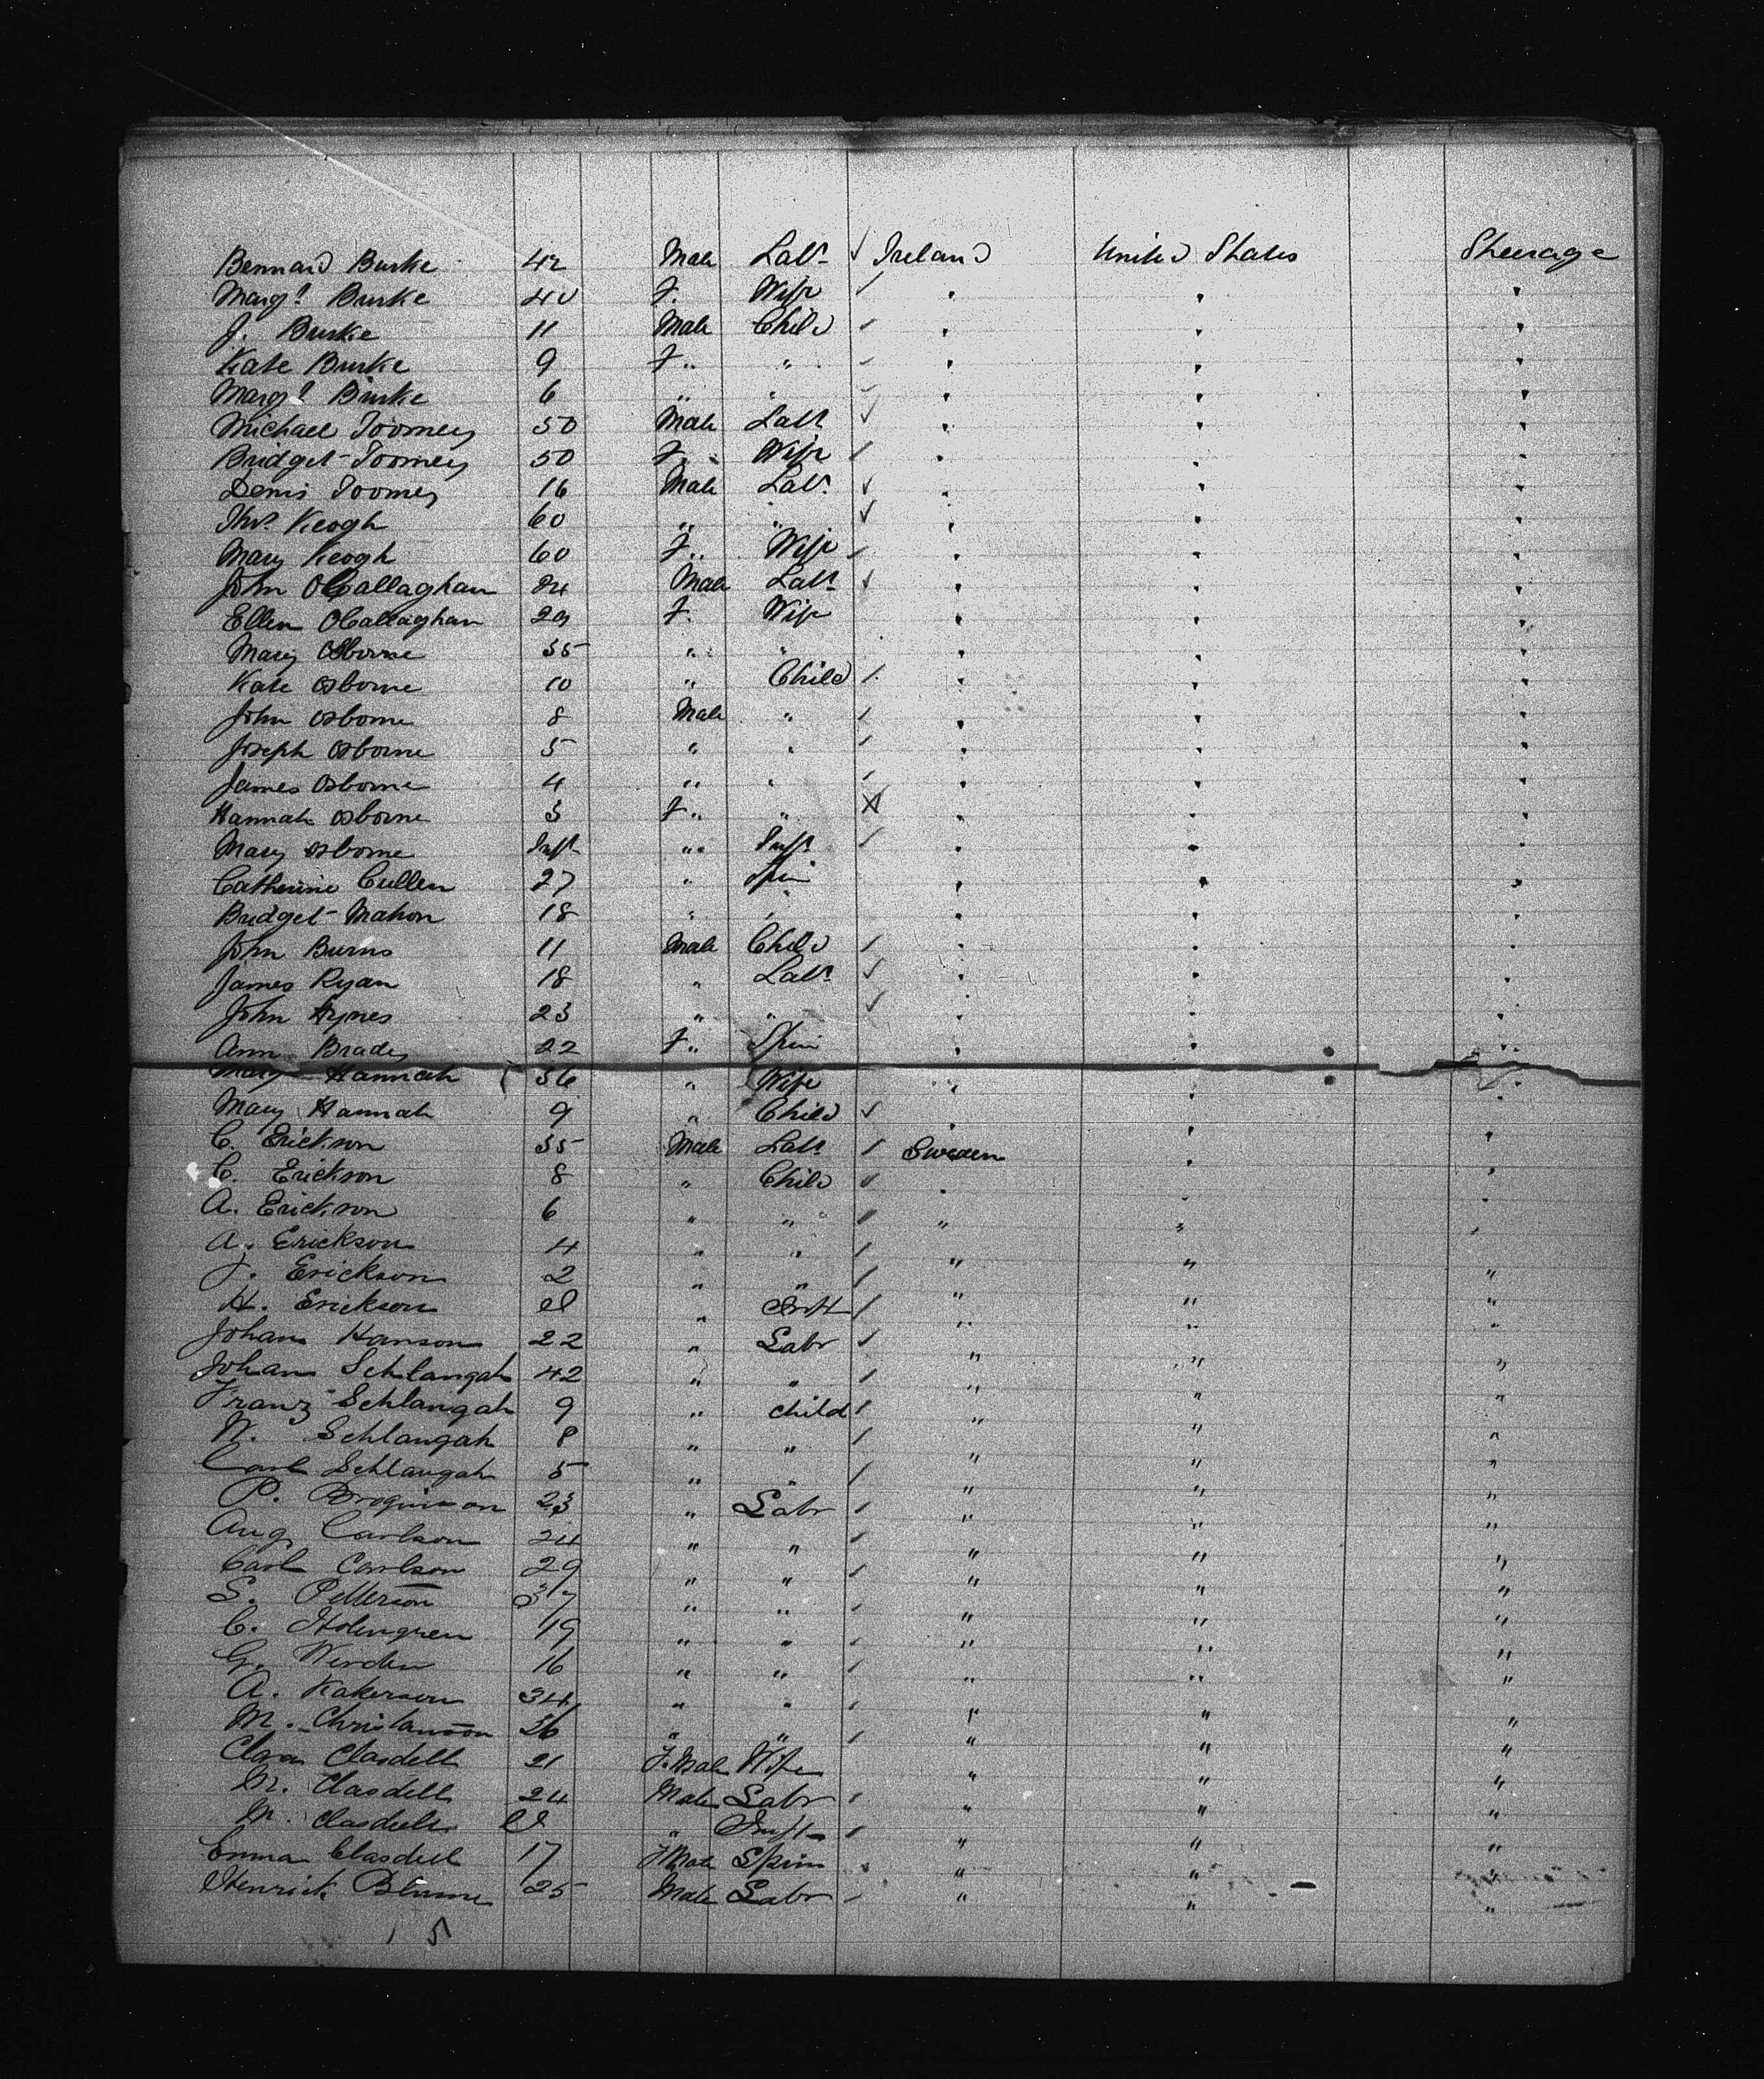 Bernard Burke 42 Male Labr ✓ Ireland United States Steerage
Margt Burke 40 F. Wife / " " "
J. Burke 11 Male Child / " " "
Kate Burke 9 F " " / " " "
Margt Burke 6 " " / " " "
Michael Toomey 50 Male Labr ✓ " " "
Bridget Toomey 50 F. Wife / " " "
Denis Toomey 16 Male Labr ✓ " " "
Thos Keogh 60 " " ✓ " " "
Mary Keogh 60 F " Wife / " " "
John OCallaghan 24 Male Labr ✓ " " "
Ellen OCallaghan 29 F. Wife " " "
Mary Osborne 35 " " " " "
Kate Osborne 10 " Child / " " "
John Osborne 8 Male " / " " "
Joseph Osborne 5 " " / " " "
James Osborne 4 " " / " " "
Hannah Osborne 3 F " " X " " "
Mary Osborne Inft " Inft / " " "
Catherine Cullen 27 " Spin " " "
Bridget Mahon 18 " " " " "
John Burns 11 Male Child / " " "
James Ryan 18 " Labr ✓ " " "
John Hynes 23 " " ✓ " " "
Ann Brady 22 F " Spin " " "
Mary Hannah 36 " Wife " " "
Mary Hannah 9 " Child ✓ " " "
C. Erickson 35 Male Labr / Sweden " "
C. Erickson 8 " Child ✓ " " "
A. Erickson 6 " " / " " "
A. Erickson 4 " " / " " "
J. Erickson 2 " " / " " "
H. Erickson " Inft / " " "
Johan Hanson 22 " Labr / " " "
Johan Schlangah 42 " " / " " "
Franz Schlangah 9 " child / " " "
W. Schlangah 8 " " / " " "
Carl Schlangah 5 " " / " " "
P. 23 " Labr / " " "
Aug Carlson 24 " " / " " "
Carl Carlson 29 " " / " " "
S. Petterson 37 " " / " " "
C. Holmgren 19 " " / " " "
G. 16 " " / " " "
A. Kakerson 34 " " / " " "
M. Christanson 36 " " / " " "
Clara Clasdell 21 F. Male Wife " " "
M. Clasdell 24 Male Labr / " " "
M. Clasdell " Inft / " " "
Emma Clasdell 17 F Male Spinn " " "
Henrick Blume 25 Male Labr / " " "
15